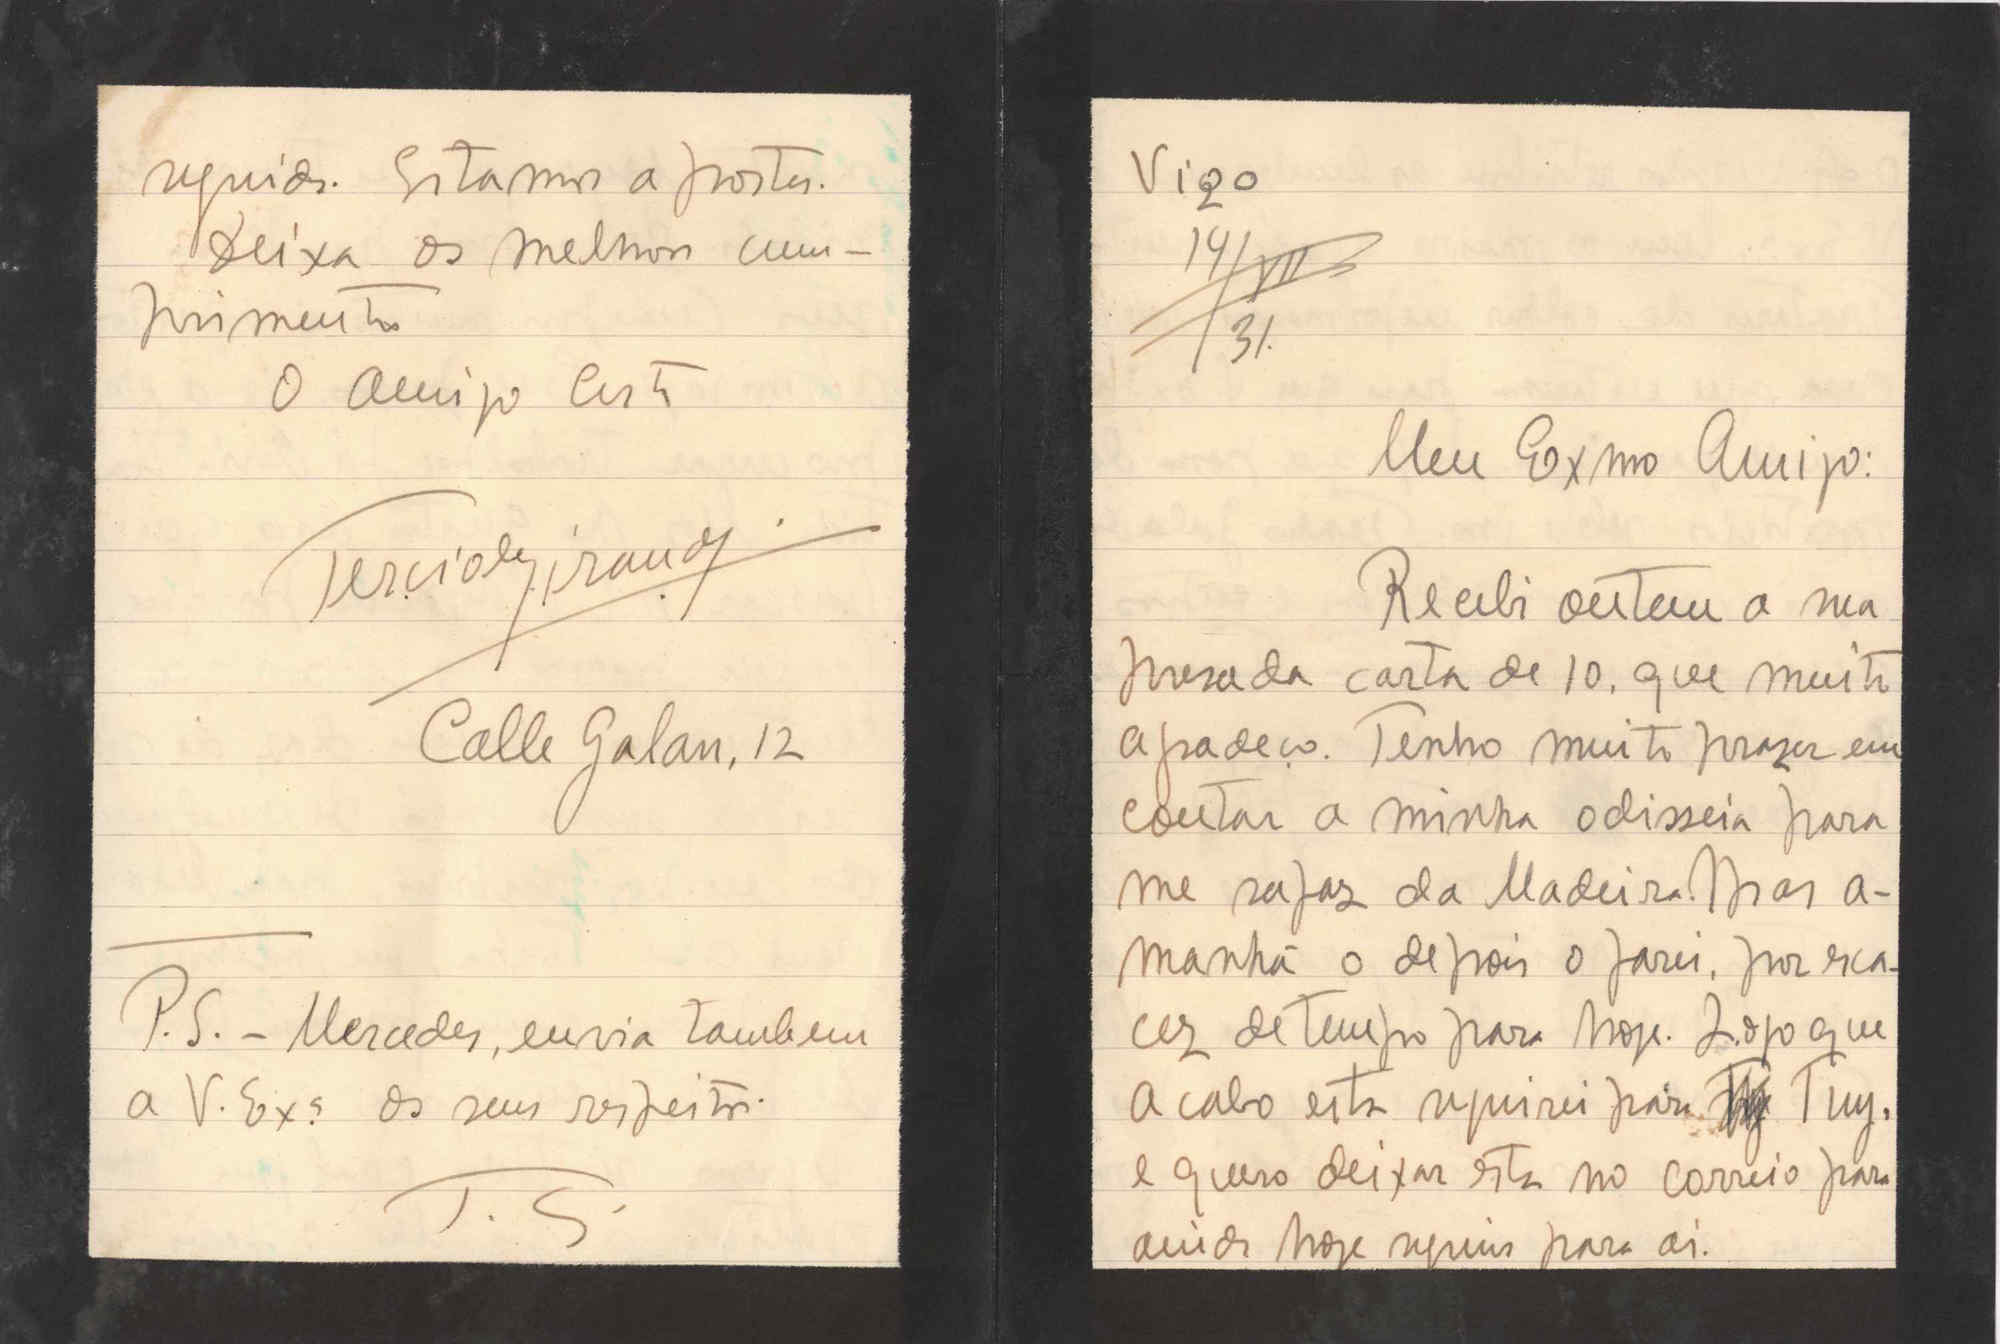 Vigo
14/VII/
31.
Meu Exmo Amigo:
Recebi ontem a sua
presada carta de 10, que muito
agradeço. Tenho muito prazer em
contar a minha odisseia para
me safar da Madeira. Mas a-
manhã o depois o farei, por esca-
cez de tempo para hoje. Logo que
acabo esta seguirei para Tuy,
e quero deixar esta no correio para
ainda hoje seguir para aí.
seguida. Estamos a postos.
Deixa os melhores cum-
primentos
O Amigo Certo
Calle Galan, 12
P.S. - Mercedes, envia tambem
a V. Exª os seus respeitos.
T. S.